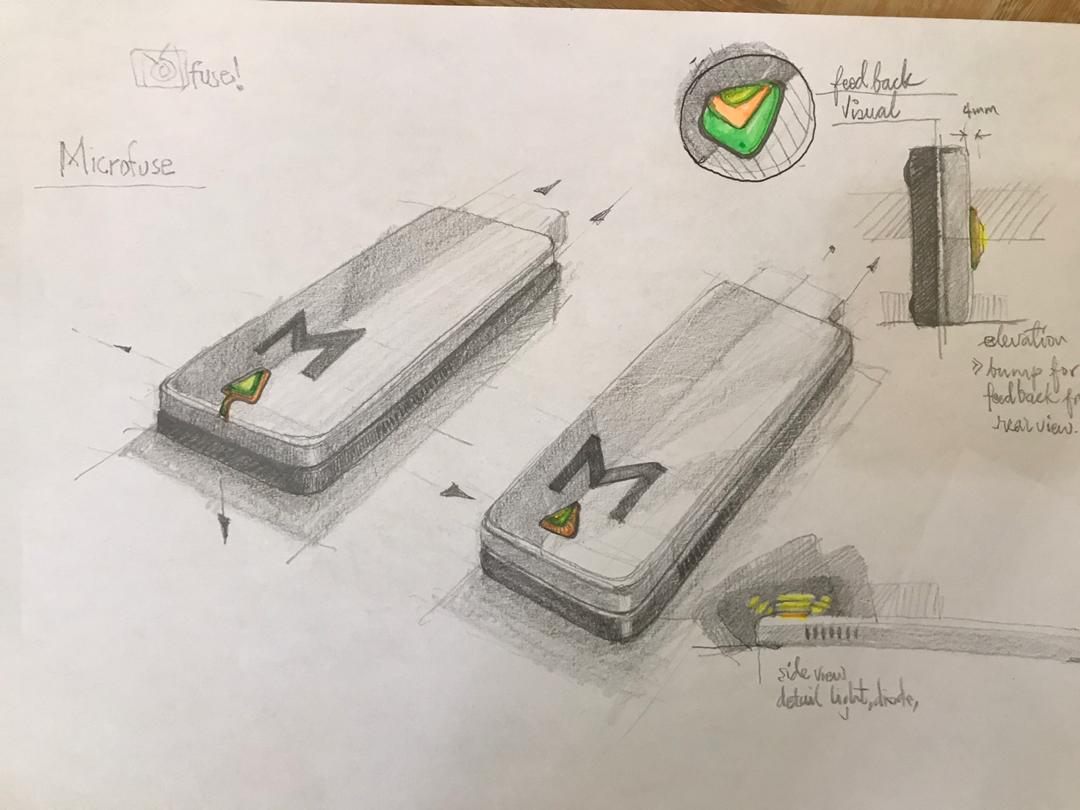 fuse!
Microfuse
feedback
Visual
4mm
M
M
elevation
» bump for
feedback fr
rear view.
side view
detail light, diode,